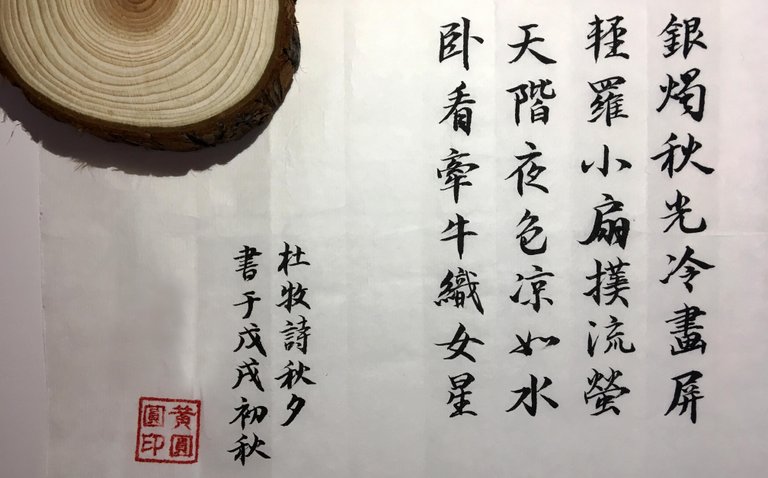 銀燭秋光冷畫屏
輕羅小扇撲流螢
天階夜色凉如水
卧看牽牛織女星
杜牧詩秋夕
書于戊戌初秋
黃圓
圓印